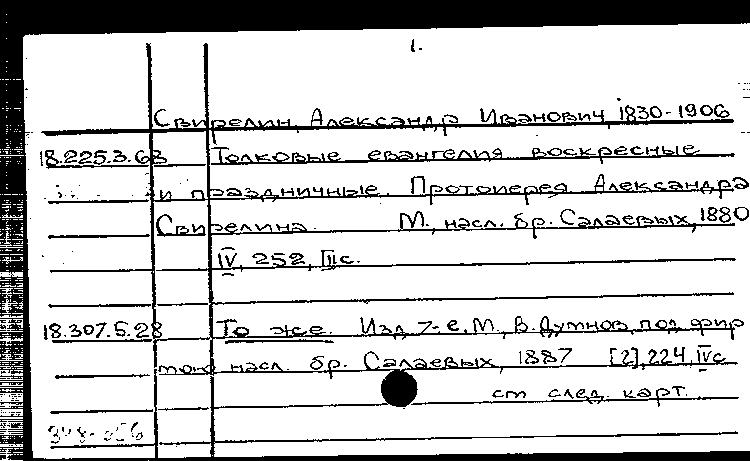 1.
Свирелин, Александр Иванович, 1830-1906
18.225.3.63 Толковые евангелия воскресные
и праздничные. Протоиерея Александра
Свирелина. М., насл. бр. Салаевых, 1880
IV, 252, IIс.
18.307.5.28 То же. Изд. 7-е. М., В. Думнов, под фир
мою насл. бр. Салаевых, 1887 [2], 224, IVс
см след. карт.